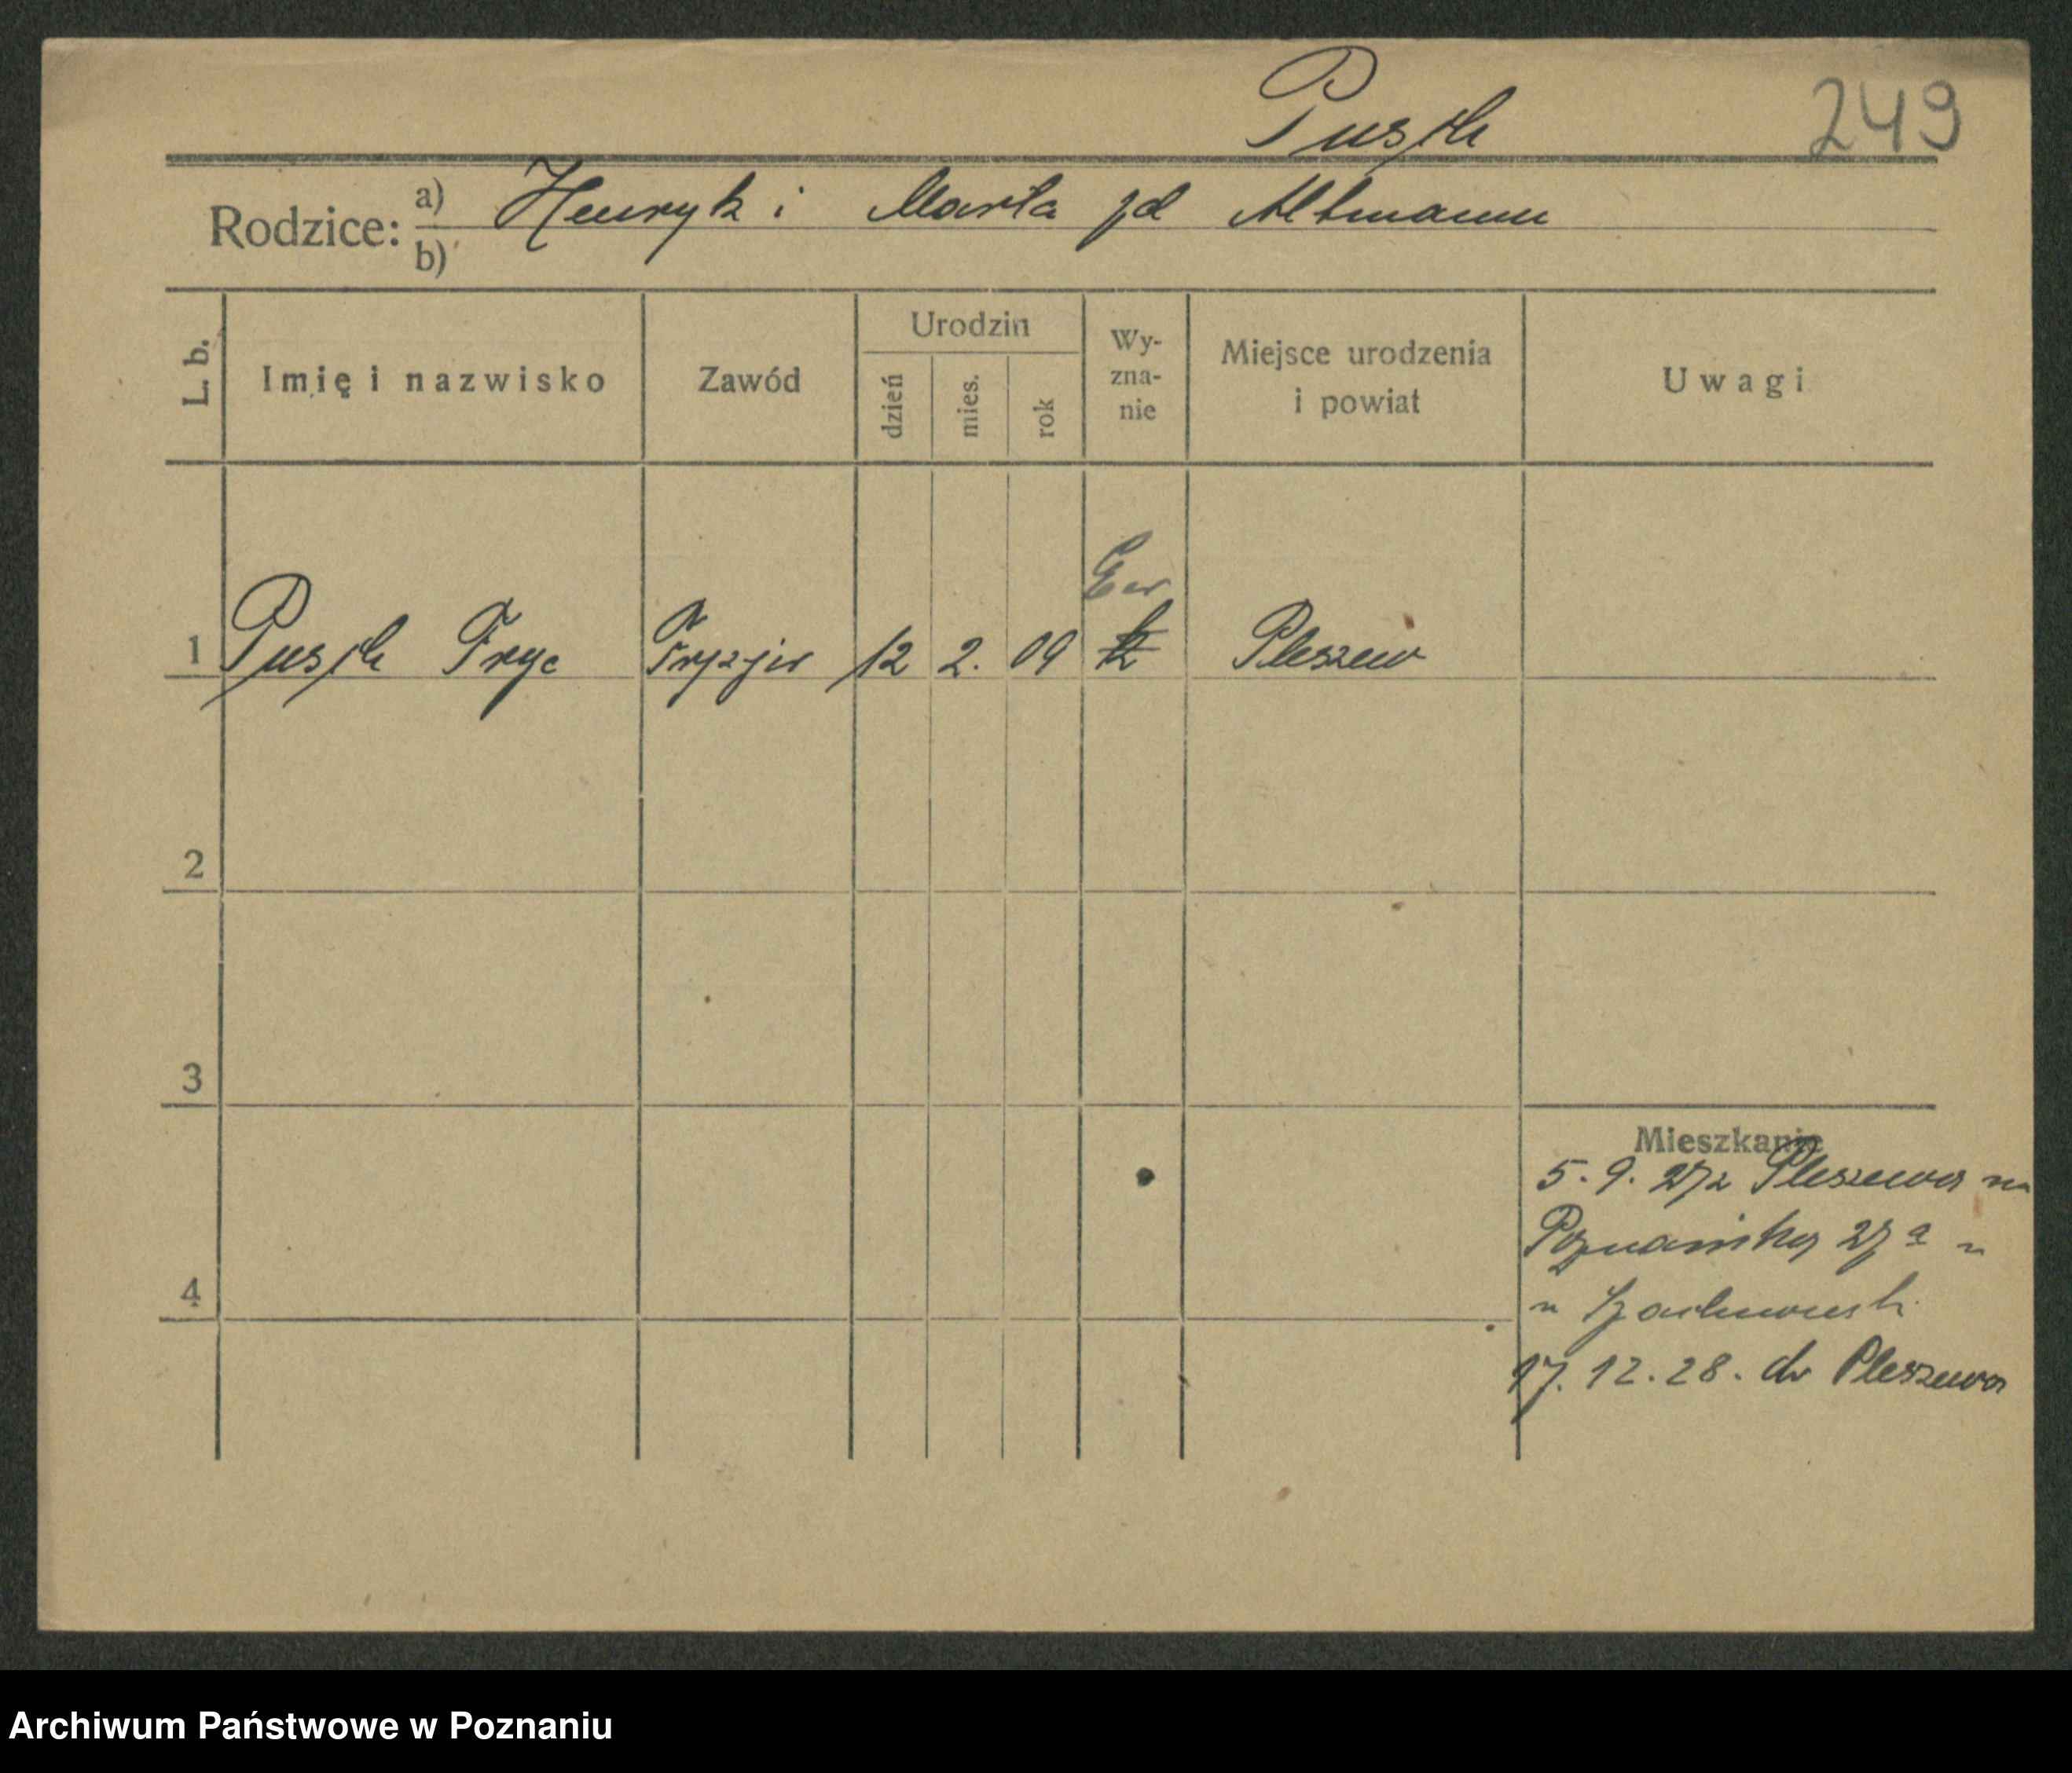 Pusch
249
Rodzice: a) Henryk i Marta zd Altmann
b)
L. b.
Imię i nazwisko
Zawód
Urodzin
dzień
mies.
rok
Wy-
zna-
nie
Miejsce urodzenia
i powiat
Uwagi
Ew
1 Pusch Fryc Fryzjer 12 2. 09 k Pleszew
2
3
4
Mieszkanie
5. 9. 27 z Pleszewa na
Poznańską 27 a u
17. 12. 28. do Pleszewa
Archiwum Państwowe w Poznaniu